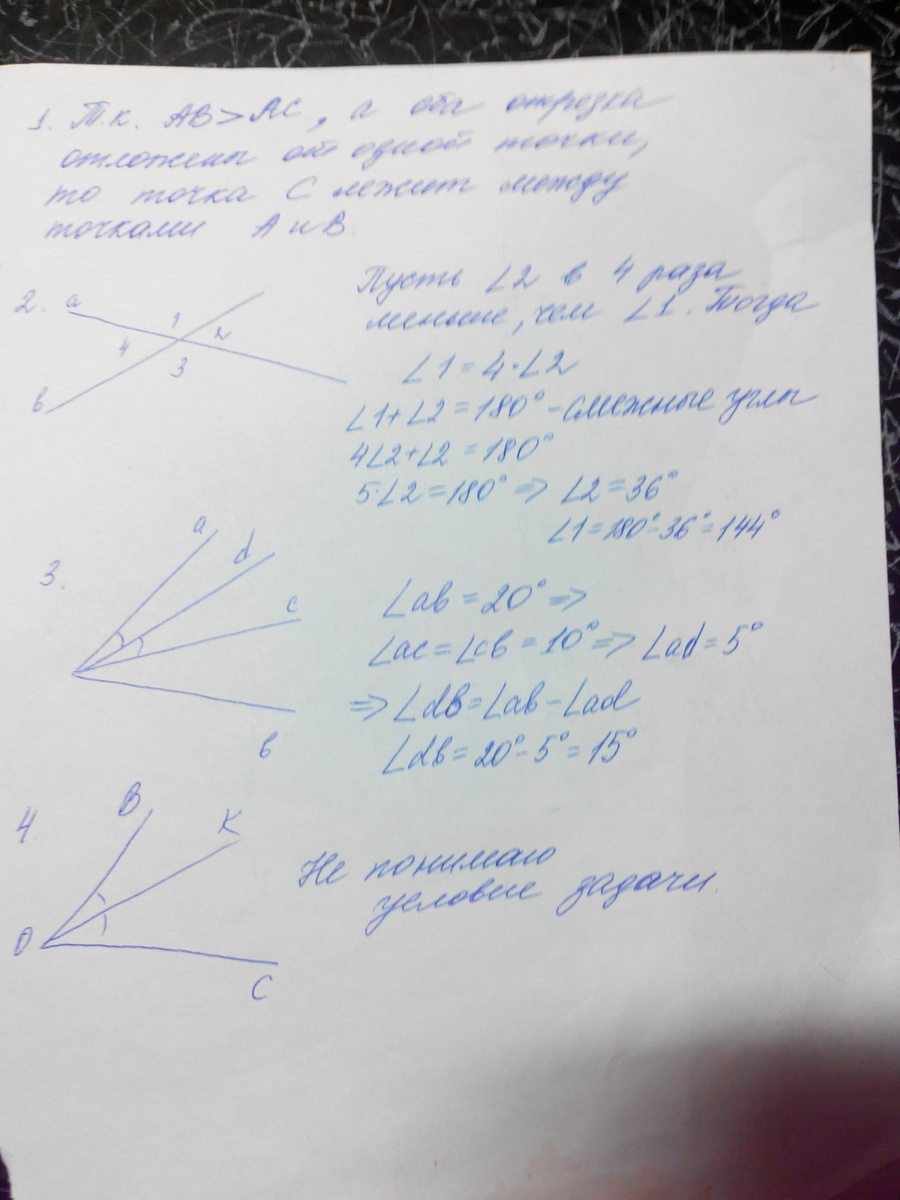 1. Т.к. AB>AC, а оба отрезка
отложены от одной точки,
то точка C лежит между
точками A и B.
2. a
1
2
4
3
b
Пусть ∠2 в 4 раза
меньше, чем ∠1. Тогда
∠1=4·∠2
∠1+∠2=180° - смежные углы
4∠2+∠2=180°
5·∠2=180° => ∠2=36°
∠1=180°-36°=144°
3.
a
d
c
b
∠ab=20° =>
∠ac=∠cb=10° => ∠ad=5°
=> ∠db=∠ab-∠ad
∠db=20°-5°=15°
4
B
K
O
C
Не понимаю
условие задачи.